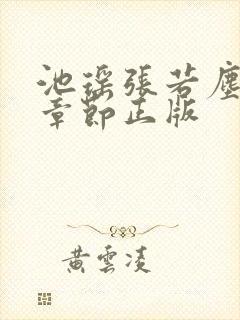 池瑶張若塵
章節正版
黄雲凌